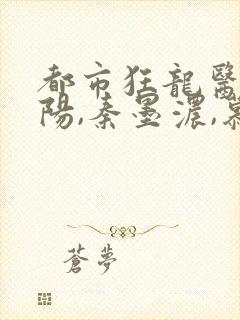 都市狂龍醫
陽,秦墨濃,慕
蒼夢